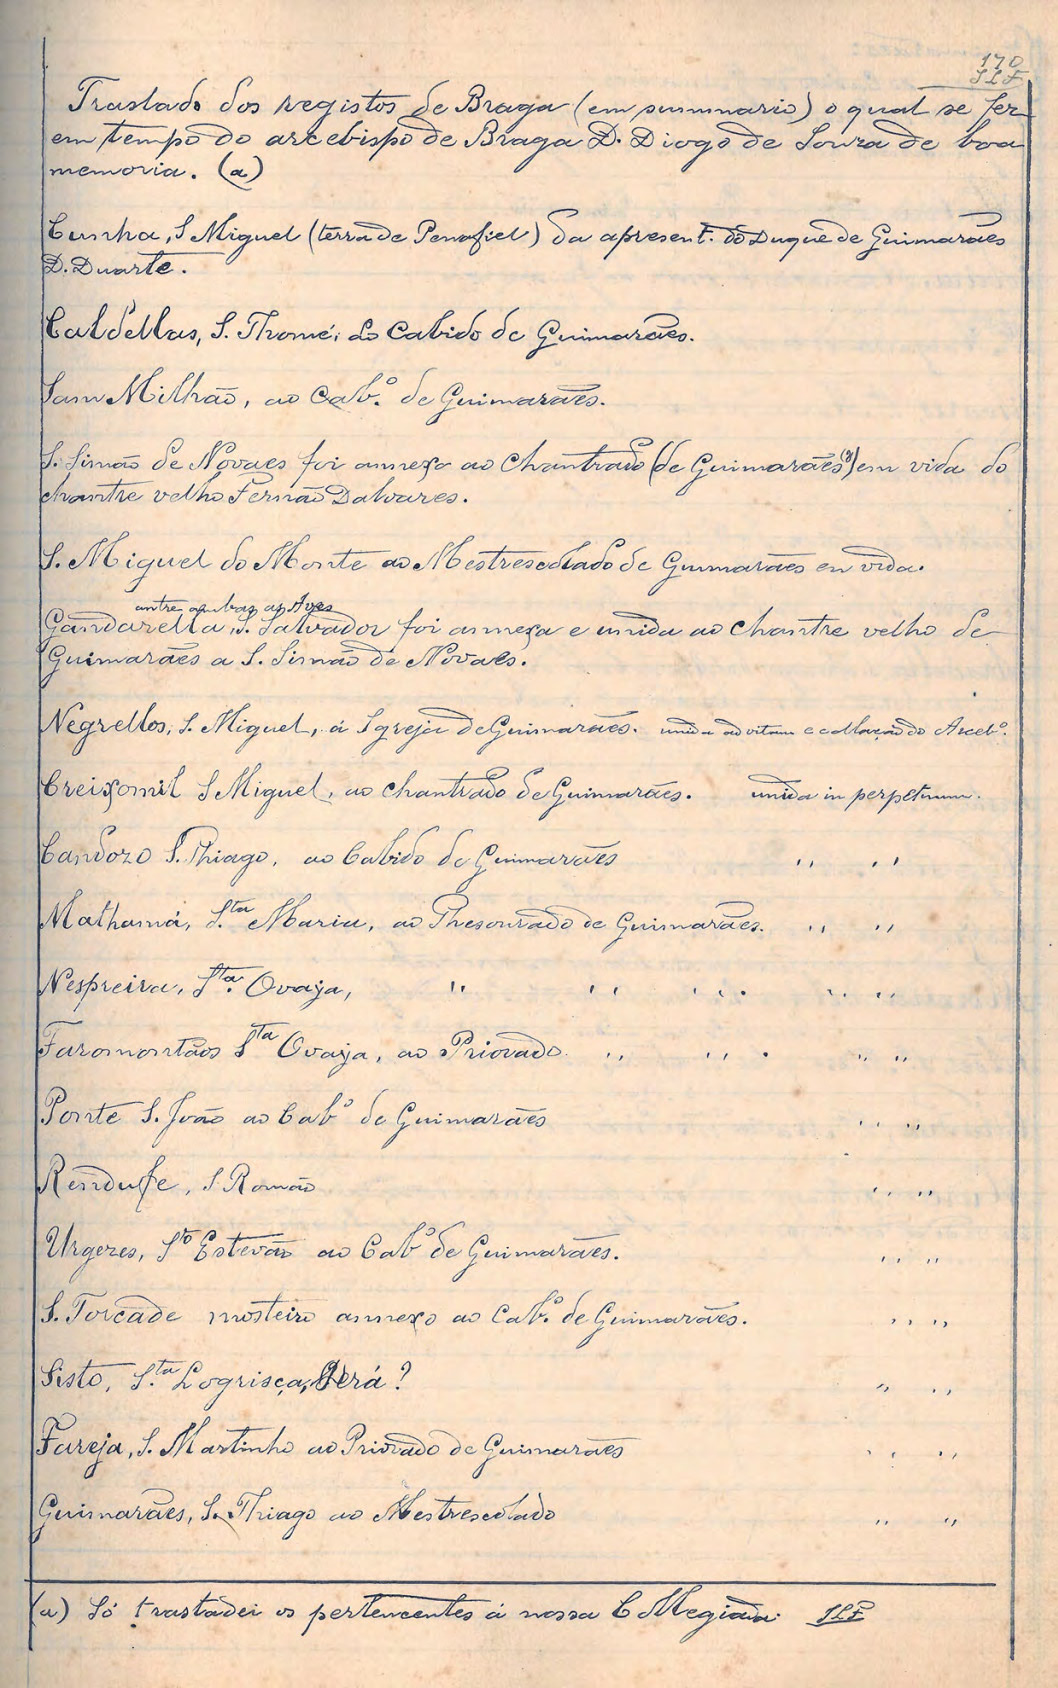 170
JLF
Traslado dos registos de Braga (em summario) o qual se fez
em tempo do arcebispo de Braga D. Diogo de Souza de boa
memoria. (a)
Cunha, S Miguel (terra de Penafiel) da apresent. do Duque de Guimarães
D. Duarte.
Caldellas, S. Thomé, do Cabido de Guimarães.
Sam Milhão, ao Cabº. de Guimarães.
S. Simão de Novaes foi annexo ao Chantrado (de Guimarães) em vida do
chantre velho Fernão Dalvares.
S. Miguel do Monte ao Mestrescolado de Guimarães en vida.
antre ambas as Aves
Gandarella, S. Salvador foi annexa e unida ao chantre velho de
Guimarães a S. Simão de Novaes.
Negrellos, S. Miguel, á Igreja de Guimarães. unida ad vitam e collação do Arcebº.
Creixomil S Miguel, ao chantrado de Guimarães. unida in perpetuum.
Candozo S. Thiago, ao Cabido de Guimarães " "
Mathamá, S.ta Maria, ao Thesourado de Guimarães. " "
Nespreira, Sta. Ovaya, " " " " "
Faromontãos Sta Ovaya, ao Priorado. " " " "
Ponte S. João ao Cabº de Guimarães " "
Rendufe, S Romão " "
Urgezes, Sto Estevão ao Cabº de Guimarães. " "
S. Torcade mosteiro annexo ao Cabº. de Guimarães. " "
Sisto, S.ta Logrisça, Será? " "
Fareja, S. Martinho ao Priorado de Guimarães " "
Guimarães, S. Thiago ao Mestrescolado " "
(a) Só trasladei os pertencentes á nossa Collegiada. JLF